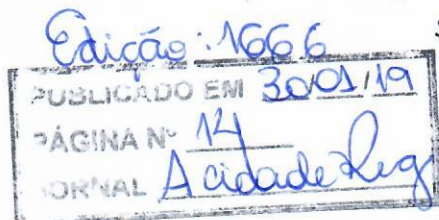 Edição: 1666
PUBLICADO EM 30/01/19
PÁGINA Nº 14
JORNAL A cidade Reg